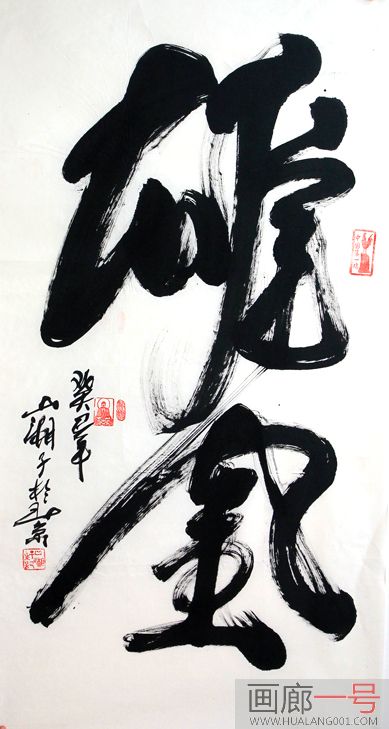 雄風
癸巳年
山湖子於京
画廊一号
WWW.HUALANG001.COM